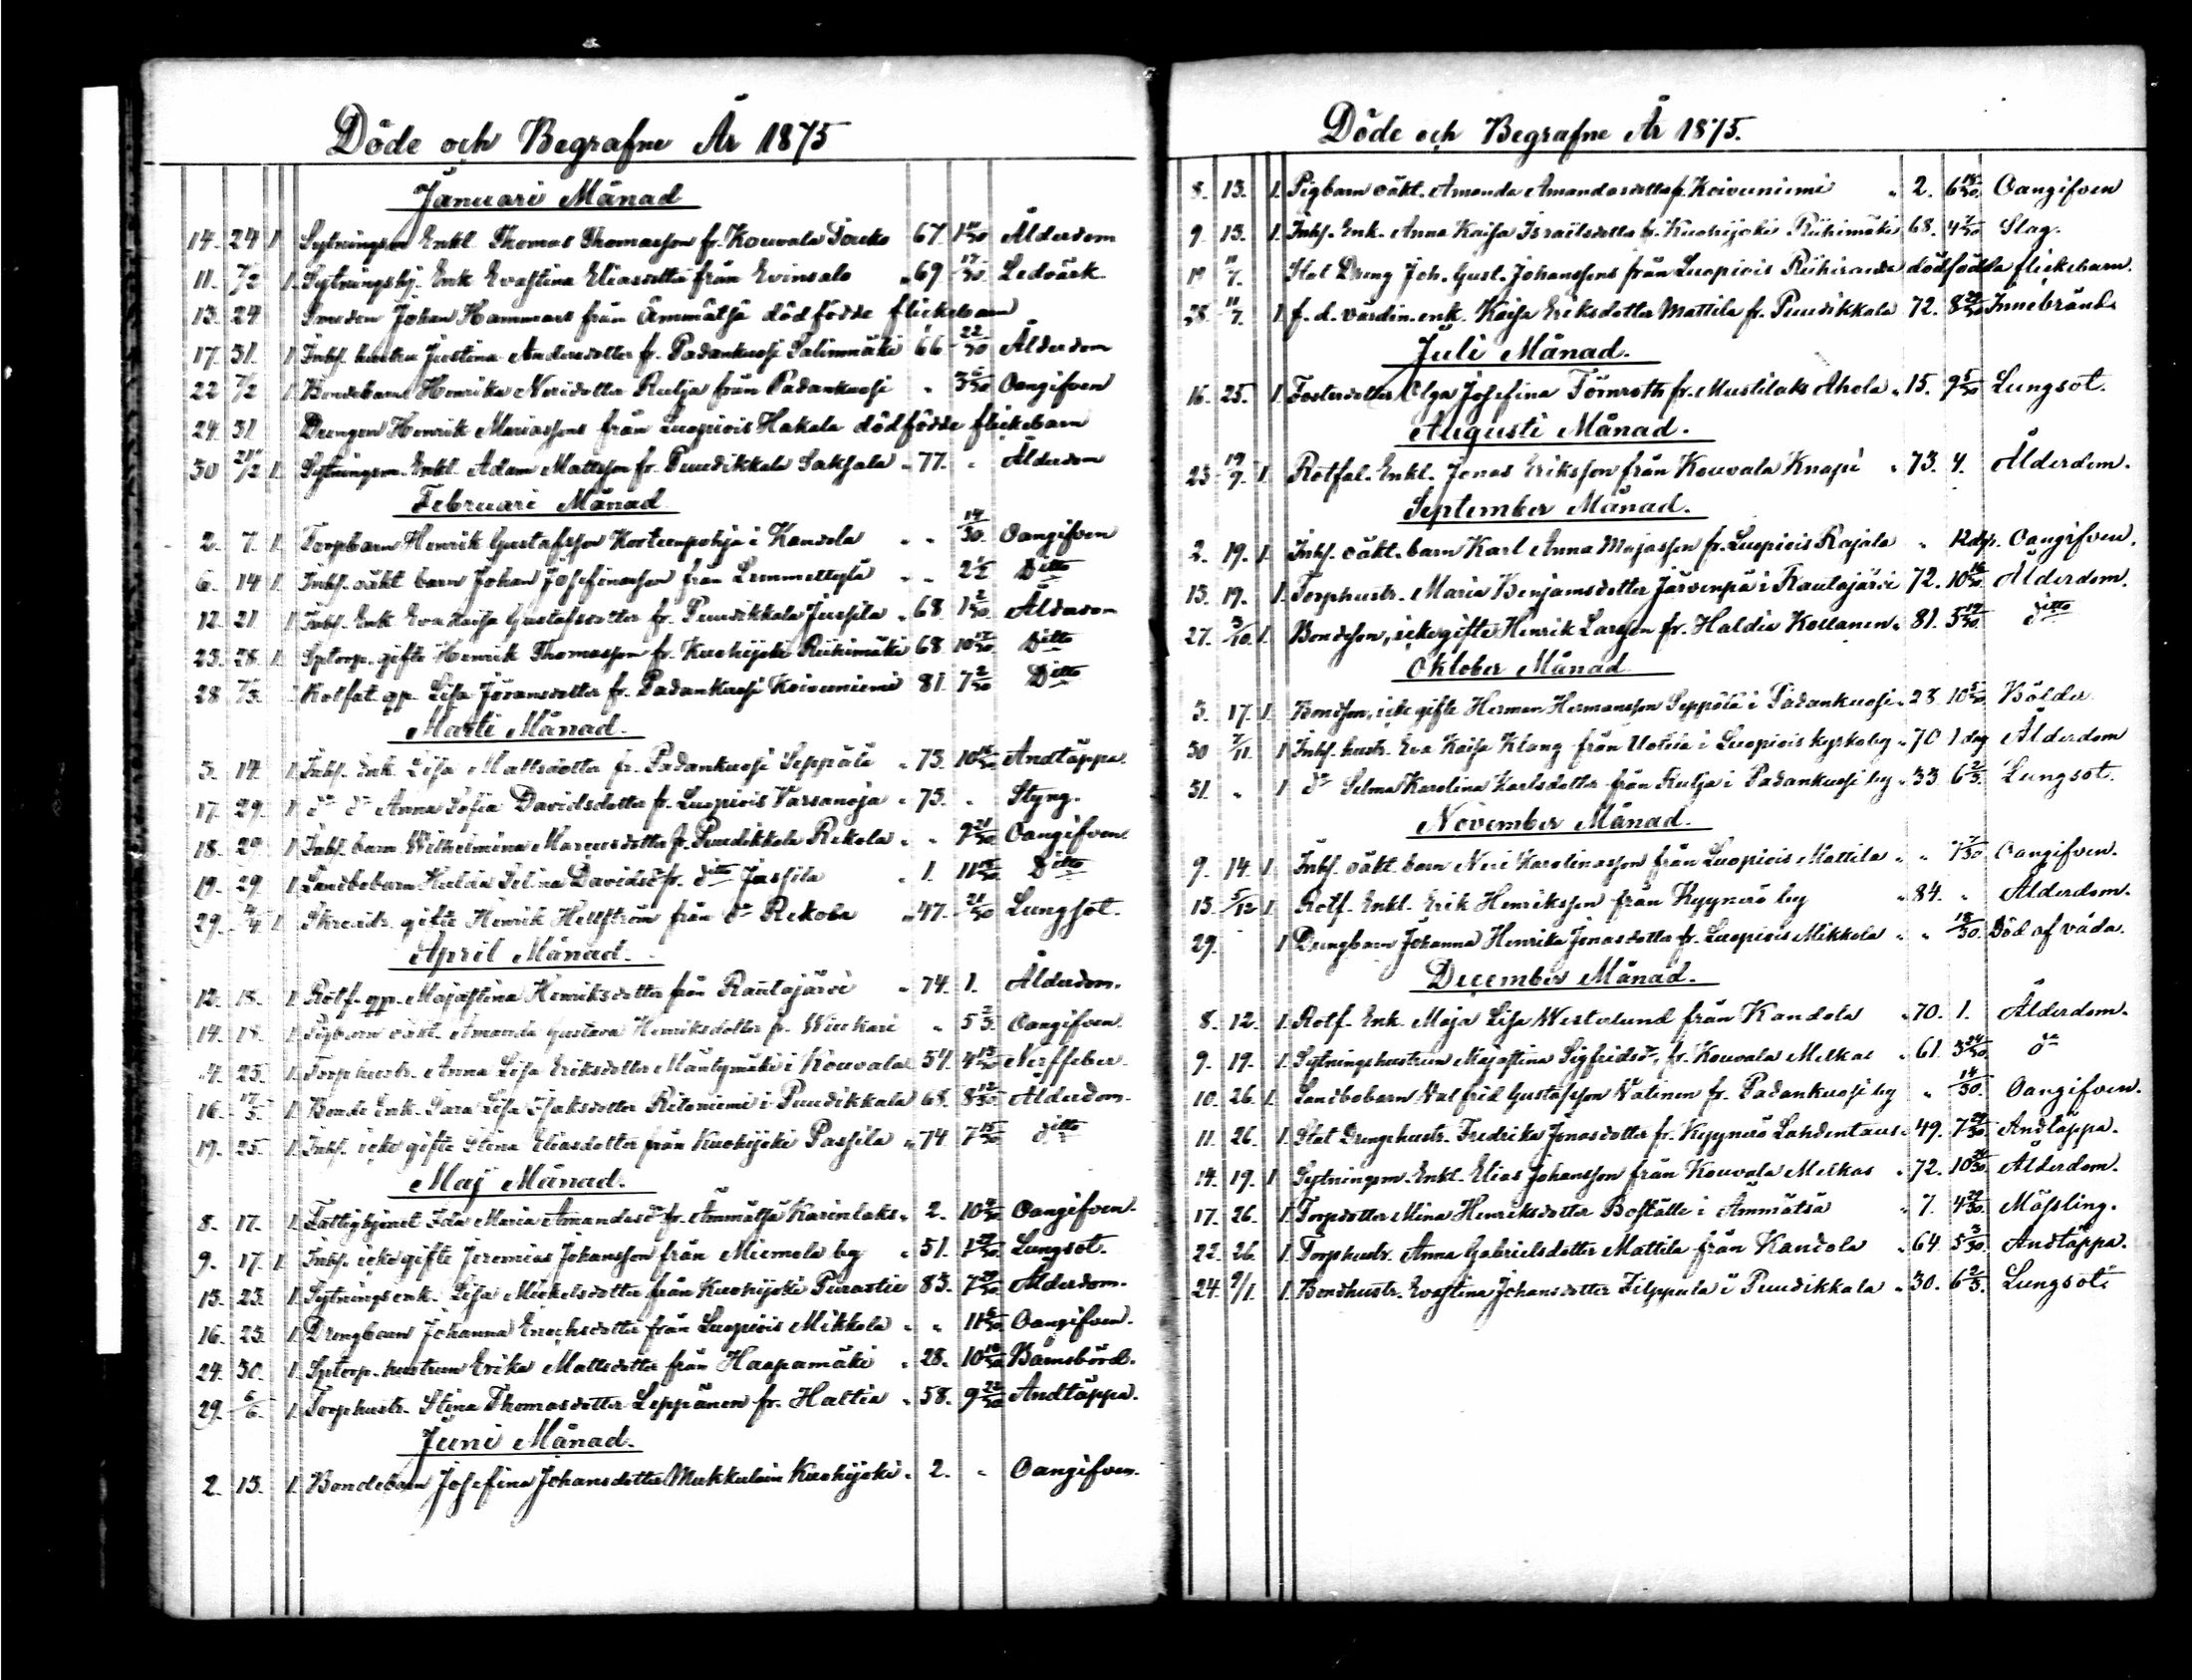 Döde och Begrafne År 1875
Januari Månad
14. 24 1 Sytningsm Enkl. Thomas Thomasson fr. Kouvala 67. Ålderdom
11. 7/2 1. Sytningshj. Enk Evastina Eliasdotter från Evinsalo 69. 17/30 Ledvärk
13. 24 Smeden Johan Hammars från Ämmätsä dödfödde flickebarn
17. 31. 1 Inhs. hustru Justina Andersdotter fr. Padankuosi Salinmäki 66 22/30 Ålderdom
22 7/2 1. Bondebarn Henrika Neridotter Reilja från Padankuosi " 3 Oangifven
24. 31 Drengen Henrik Mariassons från Luopiois Hakala dödfödde flickebarn
30 21/2 1. Sytningsm. Enkl. Adam Mattsson fr. Puudikkala Saksala " 77. " Ålderdom
Februari Månad
2. 7. 1. Torpbarn Henrik Gustafsson Korteenpohja i Kandola " " 14/30. Oangifven
6. 14 1. Inhs. oäkt barn Johan Josefinasson från Lemmettylä " " 2 Ditto
12. 21 1 Inhs. Enk Eva Kaisa Gustafsdotter fr. Puudikkala Jussila " 68. 1 2/30 Ålderdom
23. 28. 1. Sptorp. gifte Henrik Thomasson fr. Kuohijoki Riihimäki 68 10 17/30 Ditto
28 7/3. Rotfat. qp. Lisa Göransdotter fr. Padankuosi Koivuniemi 81. 7 2/30 Ditto
Marti Månad.
3. 14. 1. Inhs. Enk. Lisa Mattsdotter fr. Padankuosi Seppälä " 73. 10 Andtäppa
17. 29. 1 do do Anna Sofia Davidsdotter fr. Luopiois Varsanoja " 73. " Styng.
18. 29. 1. Inhs. barn Wilhelmina Marcusdotter fr. Puudikkala Rekola " " 9 21/30 Oangifven.
19. 29. 1. Landbobarn Hulda Selina Davidsdr fr. ditto Jussila " 1. 11 Ditto
29. 4/4 1. Skredr. gifte Henrik Hellström från do Rekola " 47. 21/30 Lungsot.
April Månad.
12. 18. 1. Rotf. qp. Majastina Henriksdotter från Rautajärvi " 74. 1. Ålderdom.
14. 18. 1. Pigbarn oäkt. Amanda Gustava Henriksdotter fr. Wiukari " 5 2/3. Oangifven.
14. 25. 1. Torphustr. Anna Lisa Eriksdotter Mäntymäki i Kouvala 54. 4 13/30 Nerffeber.
16. 17/5. 1. Bonde Enk. Sara Lisa Isaksdotter Ritoniemi i Puudikkala 68. 8 12/30 Ålderdom.
19. 25. 1. Inhs. icke gifte Stina Eliasdotter från Kuohijoki Passila " 74. 7 15/30 ditto
Maj Månad.
8. 17. 1. Fattighjonet Ida Maria Amandasdr fr. Ämmätsä Karinlaks " 2. 10 4/30 Oangifven.
9. 17. 1. Inhs. icke gifte Jeremias Johansson från Miemola by " 51. 1 Lungsot.
13. 23. 1. Sytningsenk. Lisa Mickelsdotter från Kuohijoki Piirastie 83. 7 20/30 Ålderdom.
16. 23. 1. Drengbarn Johanna Enochsdotter från Luopiois Mikkola " " 11 6/30 Oangifven.
24. 30. 1. Sptorp. hustrun Erika Mattsdotter från Haapamäki " 28. 10 18/30 Barnsbörd.
29. 6/6. 1. Torphustr. Stina Thomasdotter Leppänen fr. Haltia " 58. 9 22/30 Andtäppa.
Juni Månad.
2. 13. 1. Bondebarn Josefina Johansdotter Mukkula in Kuohijoki " 2. " Oangifven.
Döde och Begrafne År 1875.
8. 13. 1. Pigbarn oäkt. Amanda Amandasdotter fr. Koivuniemi " 2. 6 Oangifven
9. 13. 1. Inhs. Enk. Anna Kaisa Israëlsdotter fr. Kuohijoki Riihimäki 68. 4 7/30 Slag.
19 11/7. Stat Dreng Joh. Gust. Johanssons från Luopiois Riihiranda dödfödda flickebarn.
28. 11/7. 1. f. d. värdin. enk. Kaisa Eriksdotter Mattila fr. Puudikkala 72. 8 Innebränd.
Juli Månad.
16. 25. 1. Fosterdotter Olga Josefina Törnroth fr. Mustilaks Ahola " 15. 9 5/30 Lungsot.
Augusti Månad.
23 19/9. 1. Rotfal. Enkl. Jonas Eriksson från Kouvala Knapi " 73. 4. Ålderdom.
September Månad.
2. 19. 1. Inhs. oäkt. barn Karl Anna Majasson fr. Luopiois Rajala " 12 dg. Oangifven.
13. 19. 1. Torphustr. Maria Benjamsdotter Järvenpä i Rautajärvi 72. 10 Ålderdom.
27. 3/10. 1. Bondson, icke gifte Henrik Larsson fr. Haldia Kollanen " 81. 5 19/30 ditto
Oktober Månad
3. 17. 1. Bondson, icke gifte Herman Hermansson Seppälä i Padankuosi " 28 10 5/30 Bölder.
30 7/11. 1 Inhs. hustr. Eva Kaisa Klang från Uotila i Luopiois kyrkoby " 70 1 dag Ålderdom
31. " 1 do Selma Karolina Karlsdotter från Reilja i Padankuosi by " 33 6 2/3. Lungsot.
November Månad.
9. 14. 1. Inhs. oäkt. barn Neri Karolinasson från Luopiois Mattila " " 7/30 Oangifven.
13. 5/12 1. Rotf. Enkl. Erik Henriksson från Kyynärö by " 84. " Ålderdom.
29. 1. Drengbarn Johanna Henrika Jonasdotter fr. Luopiois Mikkola " " 18/30. Död af våda.
December Månad.
8. 12. 1. Rotf. Enk. Maja Lisa Westerlund från Kandola " 70. 1. Ålderdom.
9. 19. 1. Sytningshustrun Majastina Sigfridsdr. fr. Kouvala Melkas " 61. 3 24/30 do
10. 26. 1. Landbobarn Walfrid Gustafsson Walinen fr. Padankuosi by " 14/30. Oangifven.
11. 26. 1. Stat Drengehustr. Fredrika Jonasdotter fr. Kyynärö Lahdentaus " 49. 7 29/30. Andtäppa.
14. 19. 1. Sytningsm. Enkl. Elias Johansson från Kouvala Melkas " 72. 10 Ålderdom.
17. 26. 1. Torpdotter Mina Henriksdotter Boställe i Ämmätsä " 7. 4 29/30. Mässling.
22. 26. 1. Torphustr. Anna Gabrielsdotter Mattila från Kandola " 64. 5 3/30. Andtäppa.
24. 9/1. 1. Bondhustr. Evastina Johansdotter Filppula i Puudikkala " 30. 6 2/3. Lungsot.